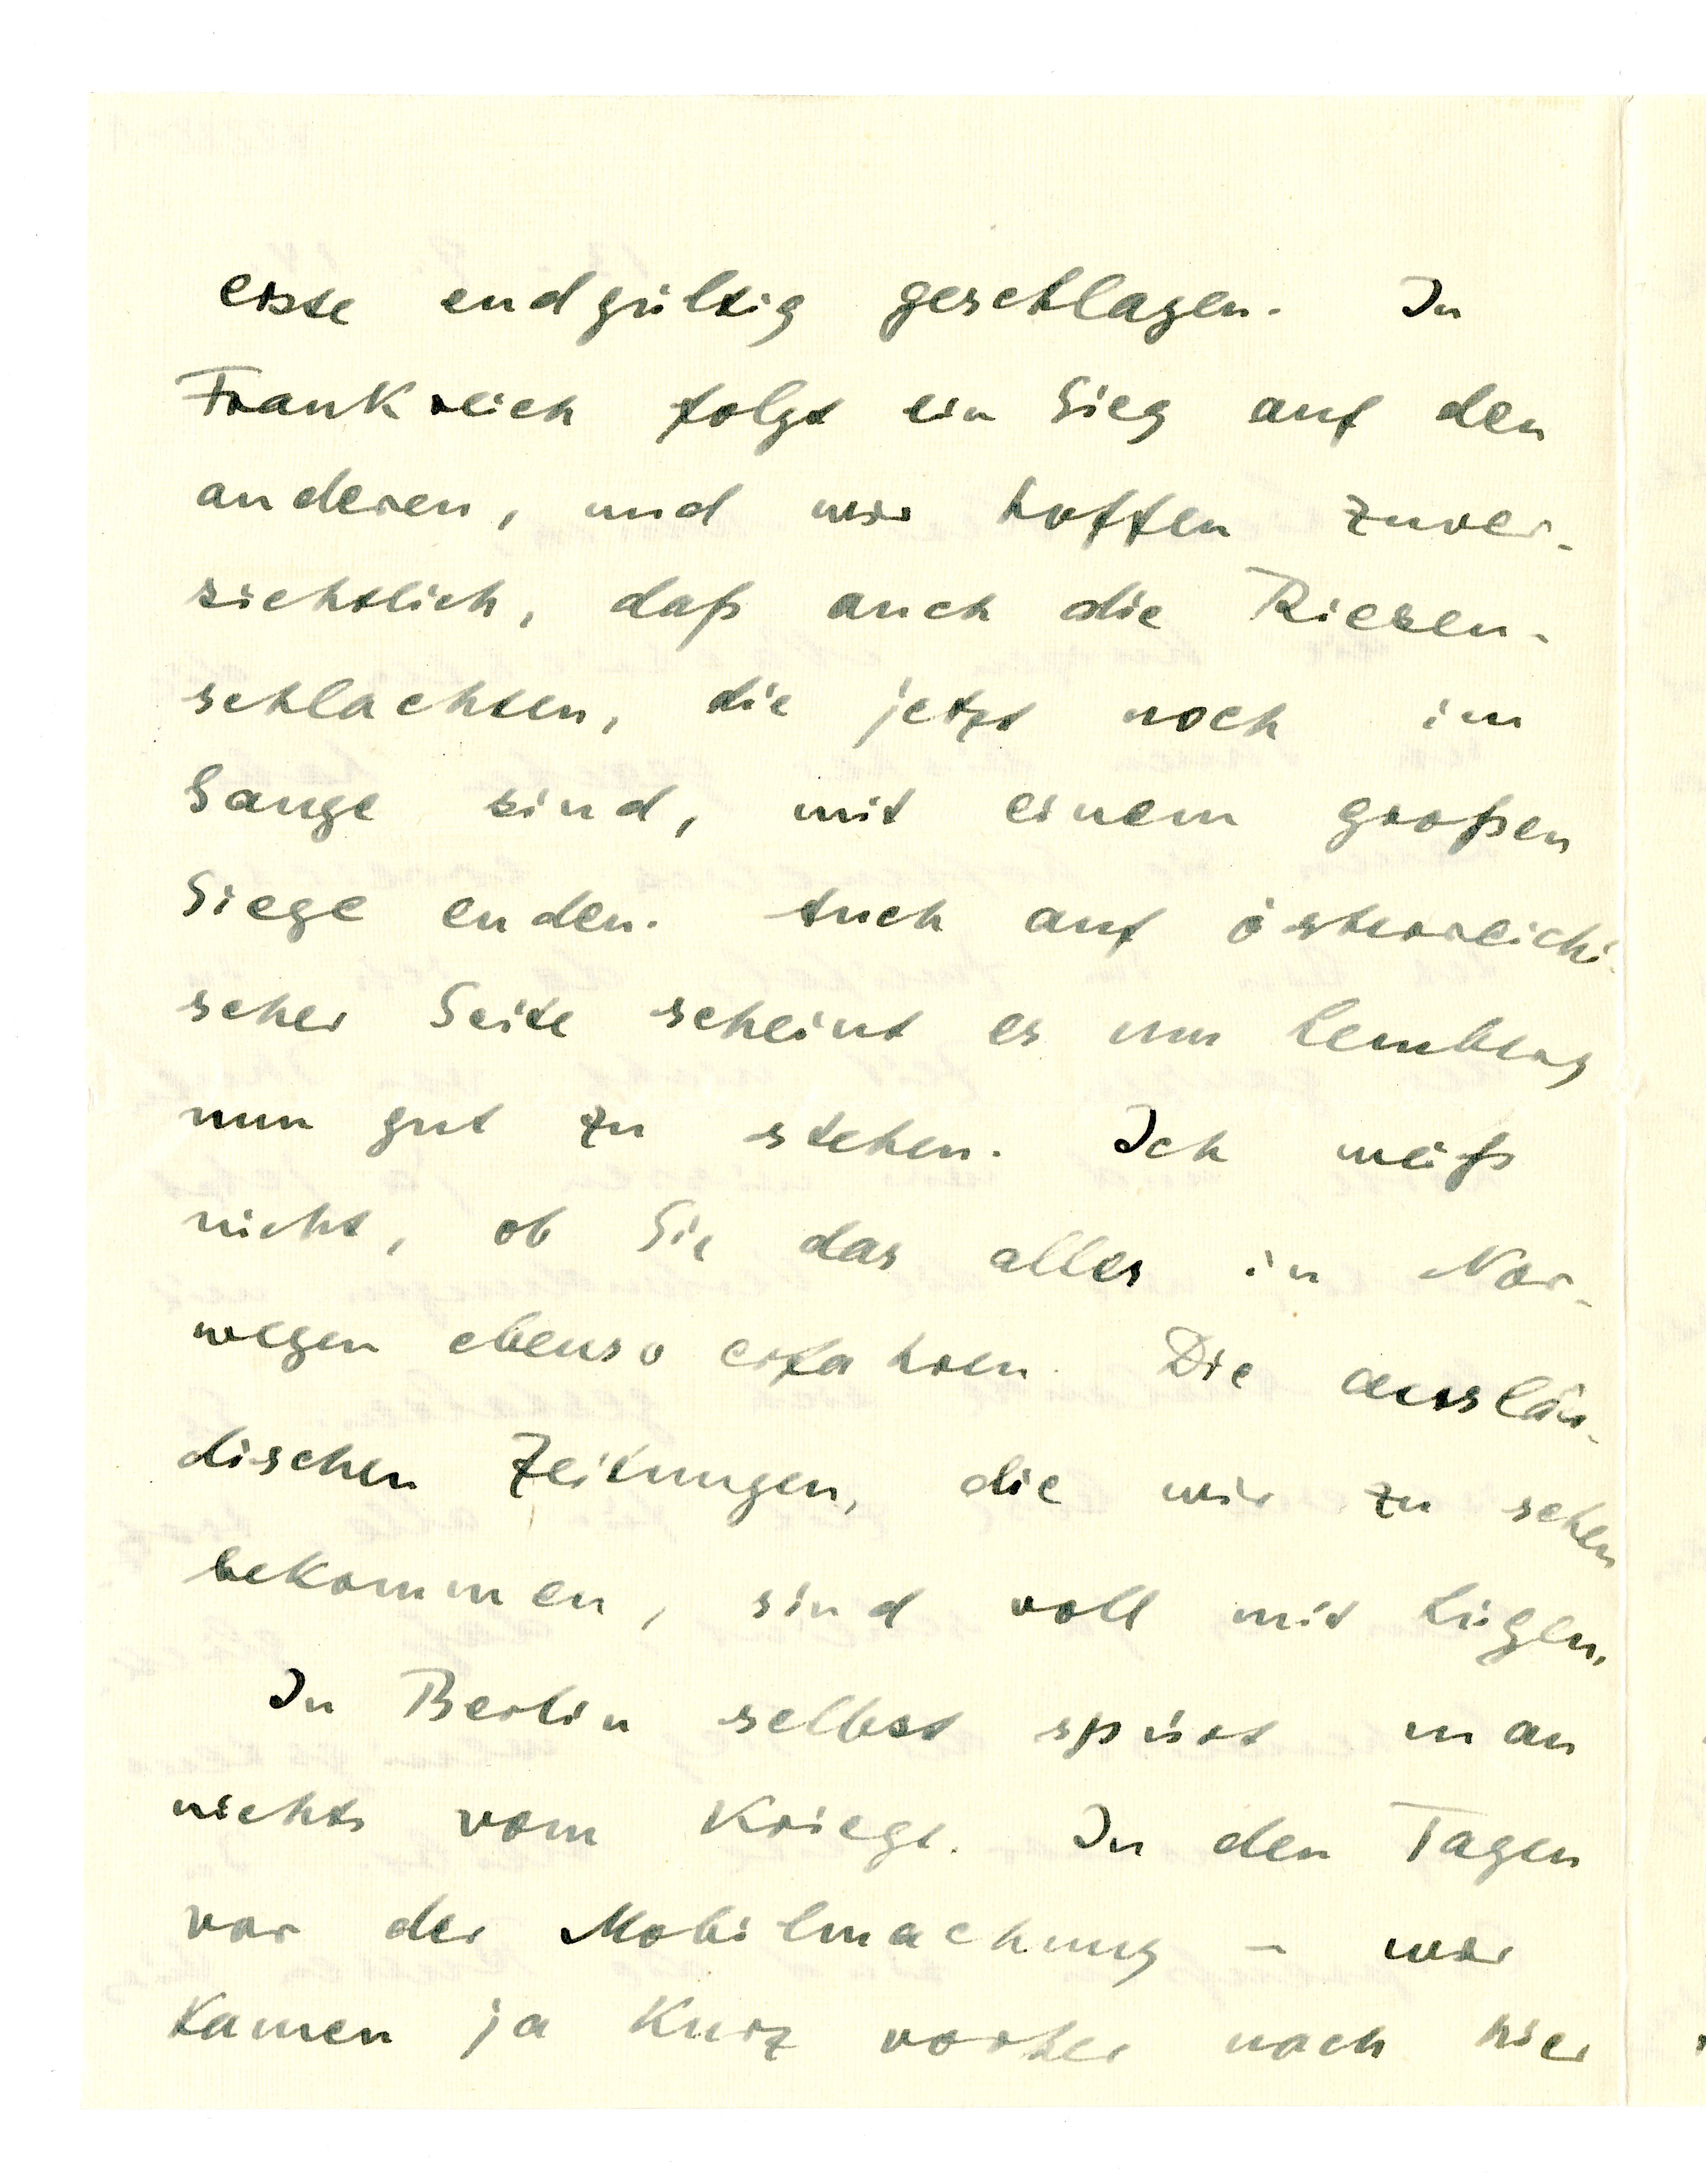 erste endgültig geschlagen. In
Frankreich folgt ein Sieg auf den
anderen, und wir hoffen zuver-
sichtlich, daß auch die Riesen-
schlachten, die jetzt noch im
Gange sind, mit einem großen
Siege enden. Auch auf österreichi-
scher Seite scheint es um Lemberg
nun gut zu stehen. Ich weiß
nicht, ob Sie das alles in Nor-
wegen ebenso erfahren. Die auslän-
dischen Zeitungen, die wir zu sehen
bekommen, sind voll mit Lügen.
In Berlin selbst spürt man
nichts vom Kriege. In den Tagen
vor der Mobilmachung – wir
kamen ja kurz vorher nach hier